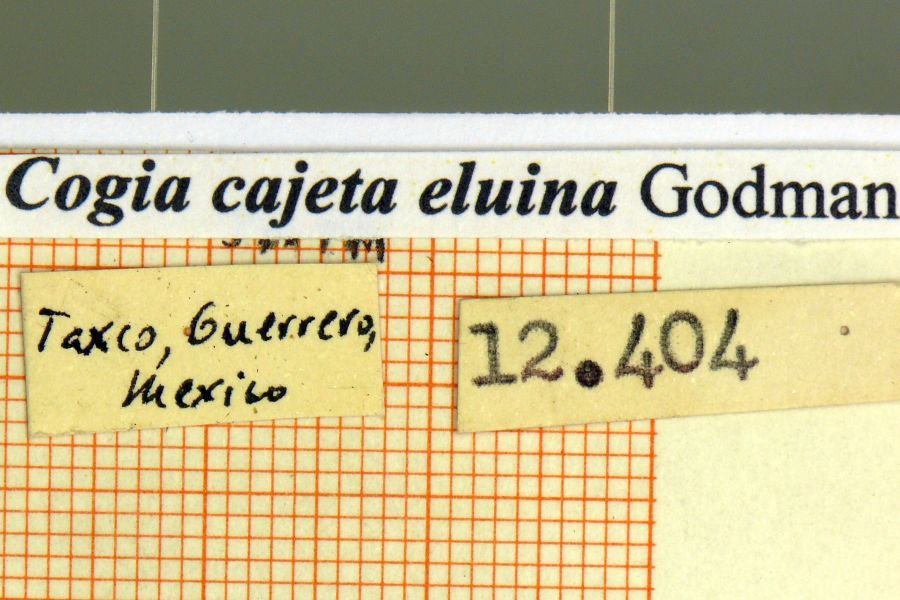 Cogia cajeta eluina Godman
Taxco, Guerrero,
Mexico
12.404